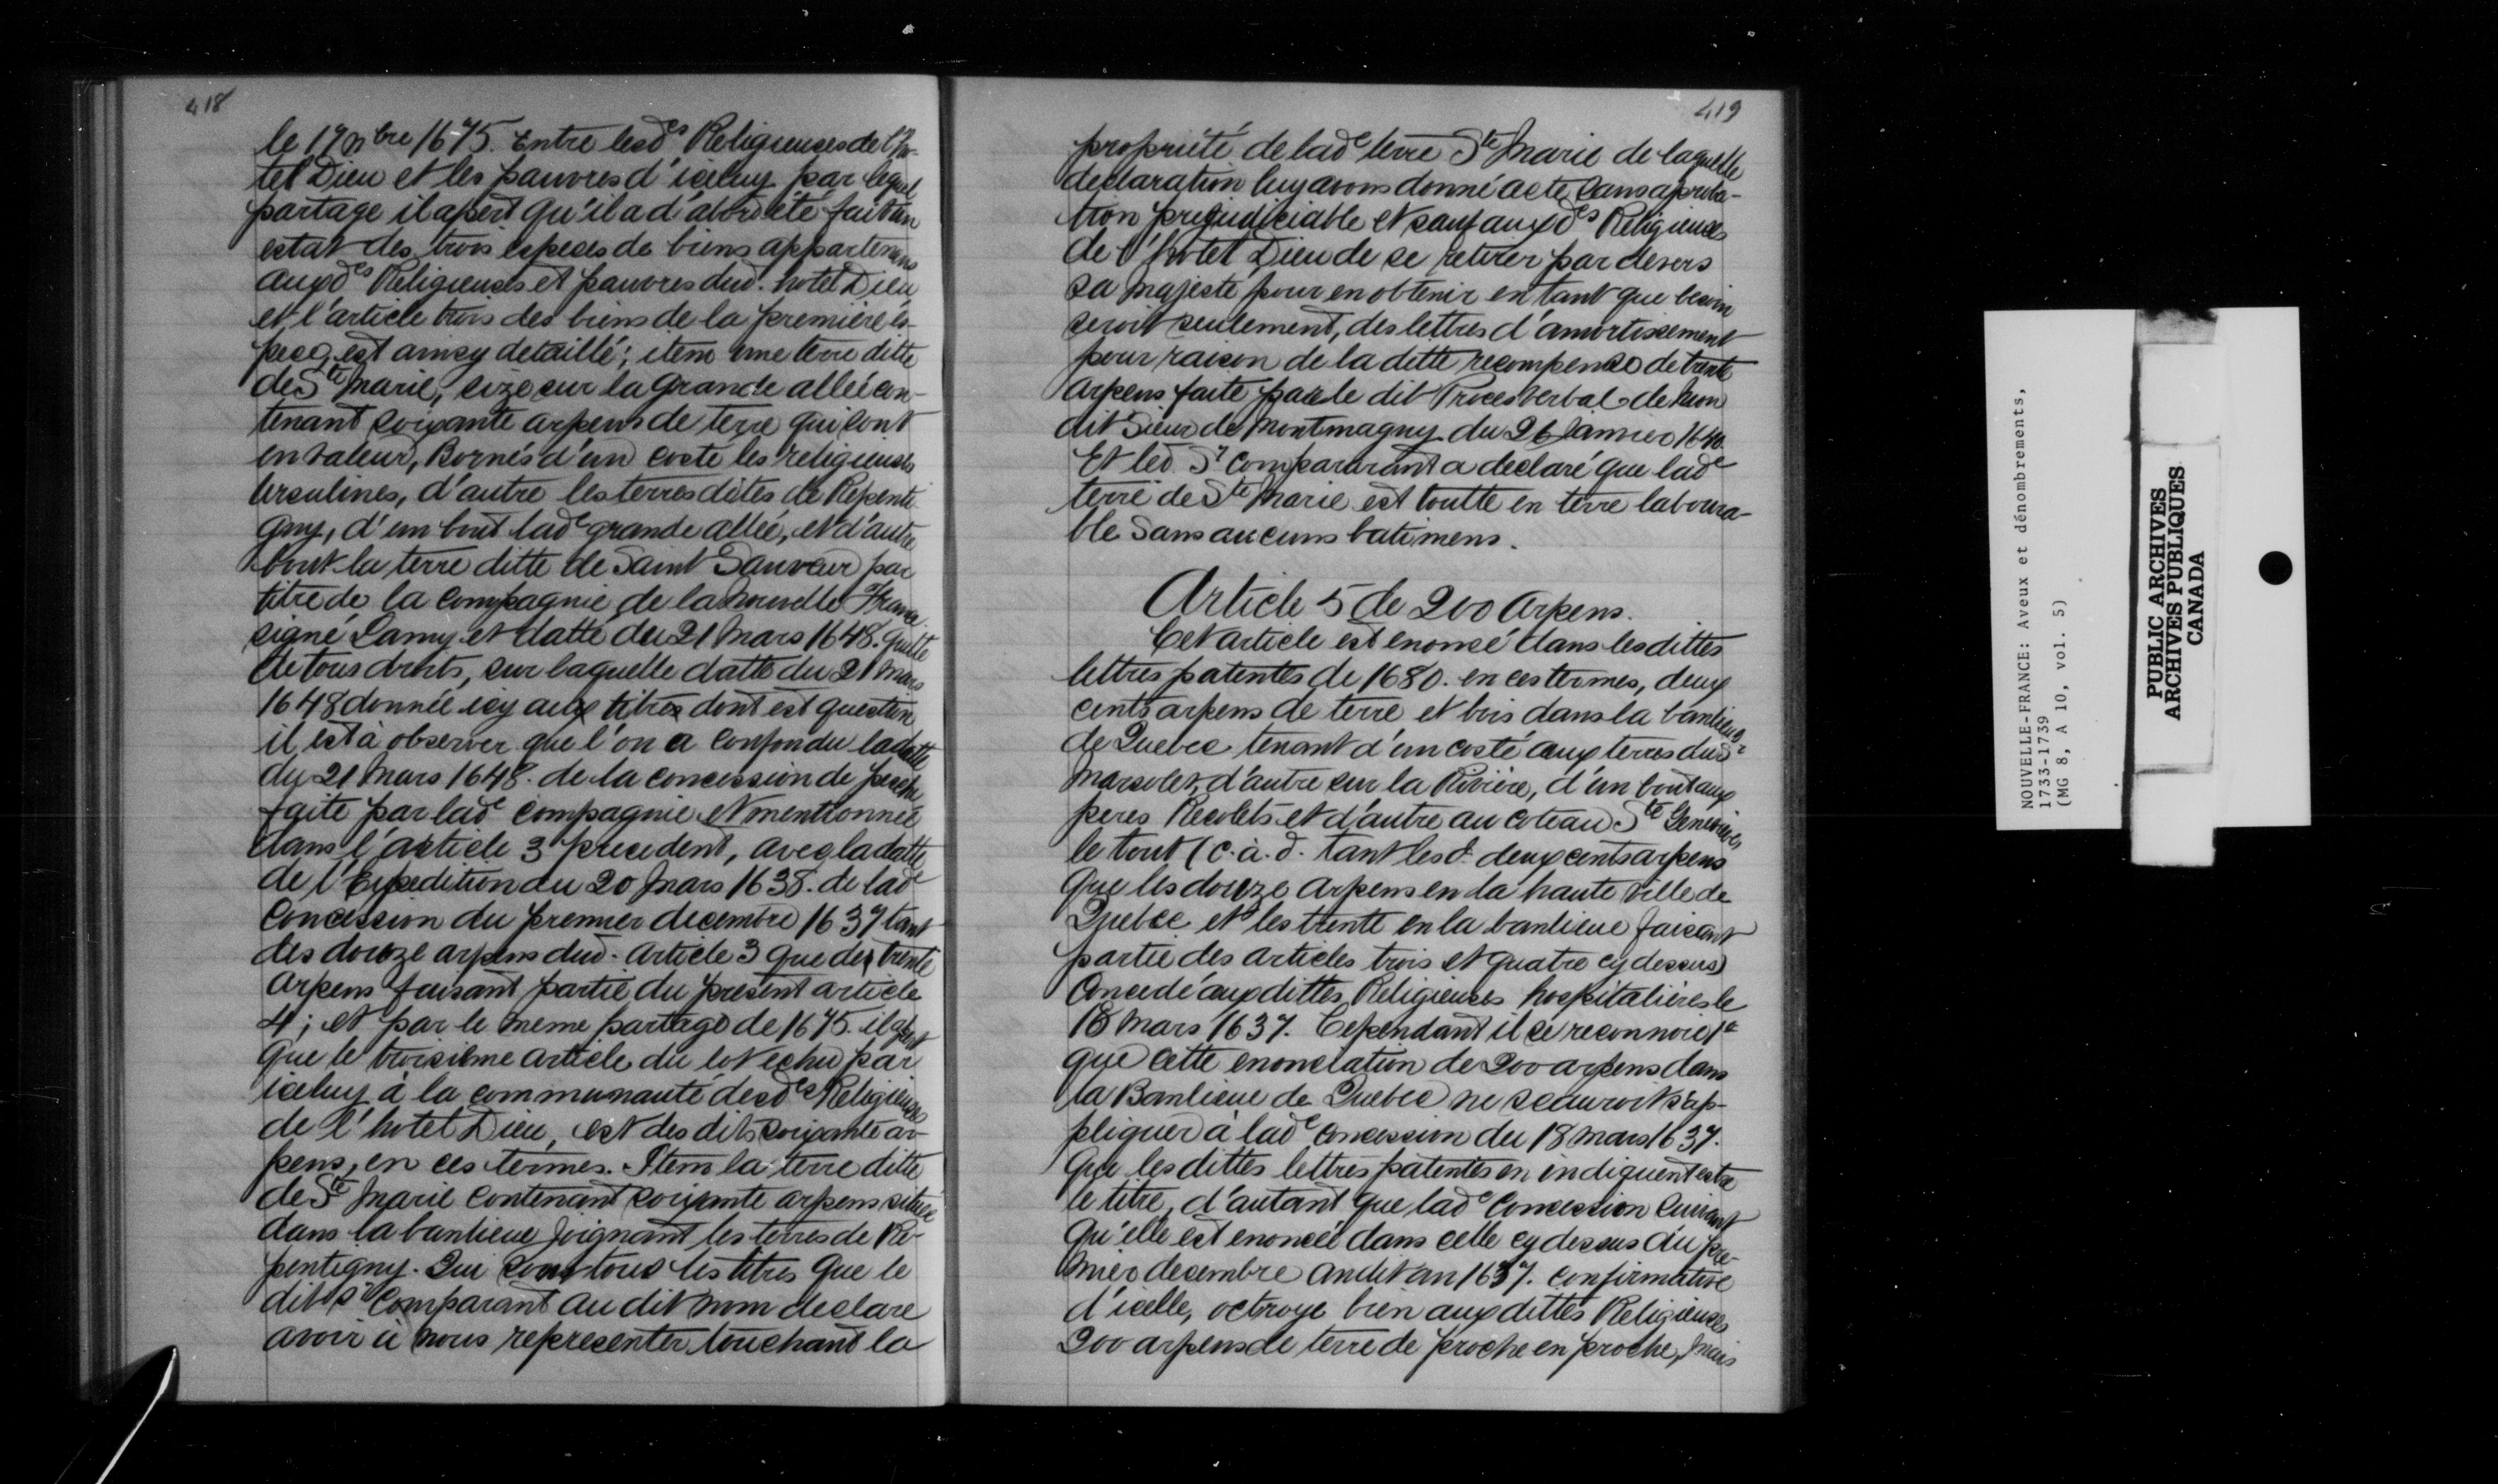 418
le 17 9bre 1675. Entre lesd.es Religieuses de l'ho-
tel Dieu et les pauvres d'iceluy par lequel
partage il apert qu'il a d'abord été fait un
estat des trois especes de biens appartenans
auxd.es Religieuses et pauvres dud. hotel Dieu
et l'article trois des biens de la première es-
pece, est ainsy detaillé; item une terre ditte
de Ste Marie, size sur la grande allée con-
tenant soixante arpens de terre qui sont
en valeur, Bornés d'un coste les religieuses
Ursulines, d'autre les terres dites de Repenti
gny, d'un bout lade grande allée, et d'autre
bout la terre ditte de Saint Sauveur par
titre de la compagnie de la Nouvelle France.
signé Lamy et datté du 21 Mars 1648. quitte
de tous droits, sur laquelle datte du 21 mars
1648 donnée icy aux titres dont est question
il est à observer que l'on a confondu la datte
du 21 Mars 1648. de la concession de pesche
faite par lade compagnie et mentionnée
dans l'article 3 precedent, avec la datte
de l'Expedition du 20 Mars 1638. de lade
Concession du premier decembre 1637 tant
des douze arpens dud. Article 3 que des trente
Arpens faisant partie du present article
4; et par le meme partage de 1675. il apert
que le troisième article du lot echu par
iceluy à la communauté desd.es Religieuses
de l'hotel Dieu, est des dits soixante ar-
pens, en ces termes. Item la terre ditte
de Ste Marie contenant soixante arpens située
dans la banlieue joignant les terres de Re-
pentigny. Qui sont tous les titres que le
dit Sr Comparant au dit nom declare
avoir à nous representer touchant la
419
propriété de lade terre Ste Marie de laquelle
declaration luy avons donné acte Sans aproba-
tion prejudiciable et sauf auxd.es Religieuses
de l'hotel Dieu de se retirer par devers
sa Majeste pour en obtenir en tant que besoin
seroit seulement, des lettres d'amortissement
pour raison de la ditte recompense de trente
Arpens faite par le dit Proces verbal de mon
dit Sieur de Montmagny du 26 Janvier 1640.
Et led. Sr comparant a declaré que lade
terre de Ste Marie est toutte en terre laboura-
ble Sans aucuns batimens.
Article 5 de 200 Arpens.
Cet article est enoncé dans les dittes
lettres patentes de 1680. en ces termes, deux
cents arpens de terre et bois dans la banlieue
de Quebec tenant d'un costé aux terres du Sr
Marsolet, d'autre sur la Rivière, d'un bout aux
peres Recolets et d'autre au coteau Ste Genevieve,
le tout (c.à.d. tant lesd. deux cents arpens
que les douze Arpens en la haute ville de
Quebec et les trente en la banlieue faisant
partie des articles trois et quatre cy dessus)
Concedé aux dittes Religieuses hospitalières le
18 Mars 1637. Cependant il se reconnoit
que cette enonciation de 200 arpens dans
la Banlieue de Quebec ne scauroit s'ap-
pliquer à lade Concession du 18 Mars 1637.
Que les dittes lettres patentes en indiquent estre
le titre, d'autant que lade Concession Suivant
qu'elle est enoncée dans celle cy dessus du pre-
mier decembre audit an 1637. confirmative
d'icelle, octroye bien aux dittes Religieuses
200 arpens de terre de proche en proche, mais
NOUVELLE-FRANCE: Aveux et dénombrements,
1733-1739
(MG 8, A 10, vol. 5)
PUBLIC ARCHIVES
ARCHIVES PUBLIQUES
CANADA